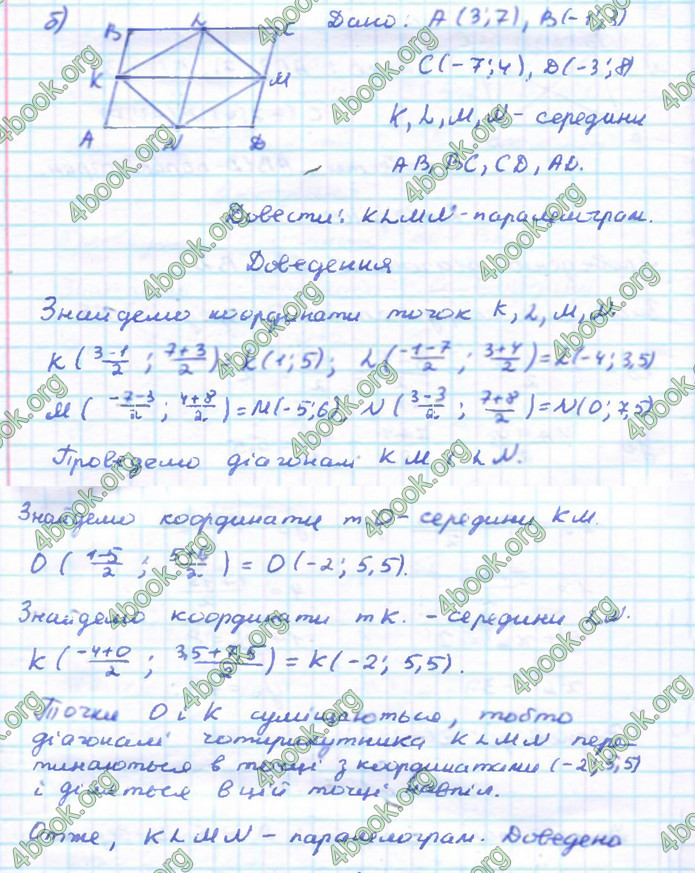 б)
B L C
K M
A N D
Дано: A(3;7), B(-1;3)
C(-7;4), D(-3;8)
K, L, M, N - середини
AB, BC, CD, AD.
Довести: KLMN - паралелограм.
Доведення
Знайдемо координати точок K, L, M, N.
K((3-1)/2; (7+3)/2) = K(1;5); L((-1-7)/2; (3+4)/2) = L(-4;3,5)
M((-7-3)/2; (4+8)/2) = M(-5;6), N((3-3)/2; (7+8)/2) = N(0;7,5)
Проведемо діагоналі KM і LN.
Знайдемо координати т. O - середини KM.
O((1-5)/2; (5+6)/2) = O(-2; 5,5).
Знайдемо координати т K. - середини LN.
K((-4+0)/2; (3,5+7,5)/2) = K(-2; 5,5).
Точки O і K суміщаються, тобто
діагоналі чотирикутника KLMN пере-
тинаються в точці з координатами (-2;5,5)
і діляться в цій точці навпіл.
Отже, KLMN - паралелограм. Доведено
4book.org